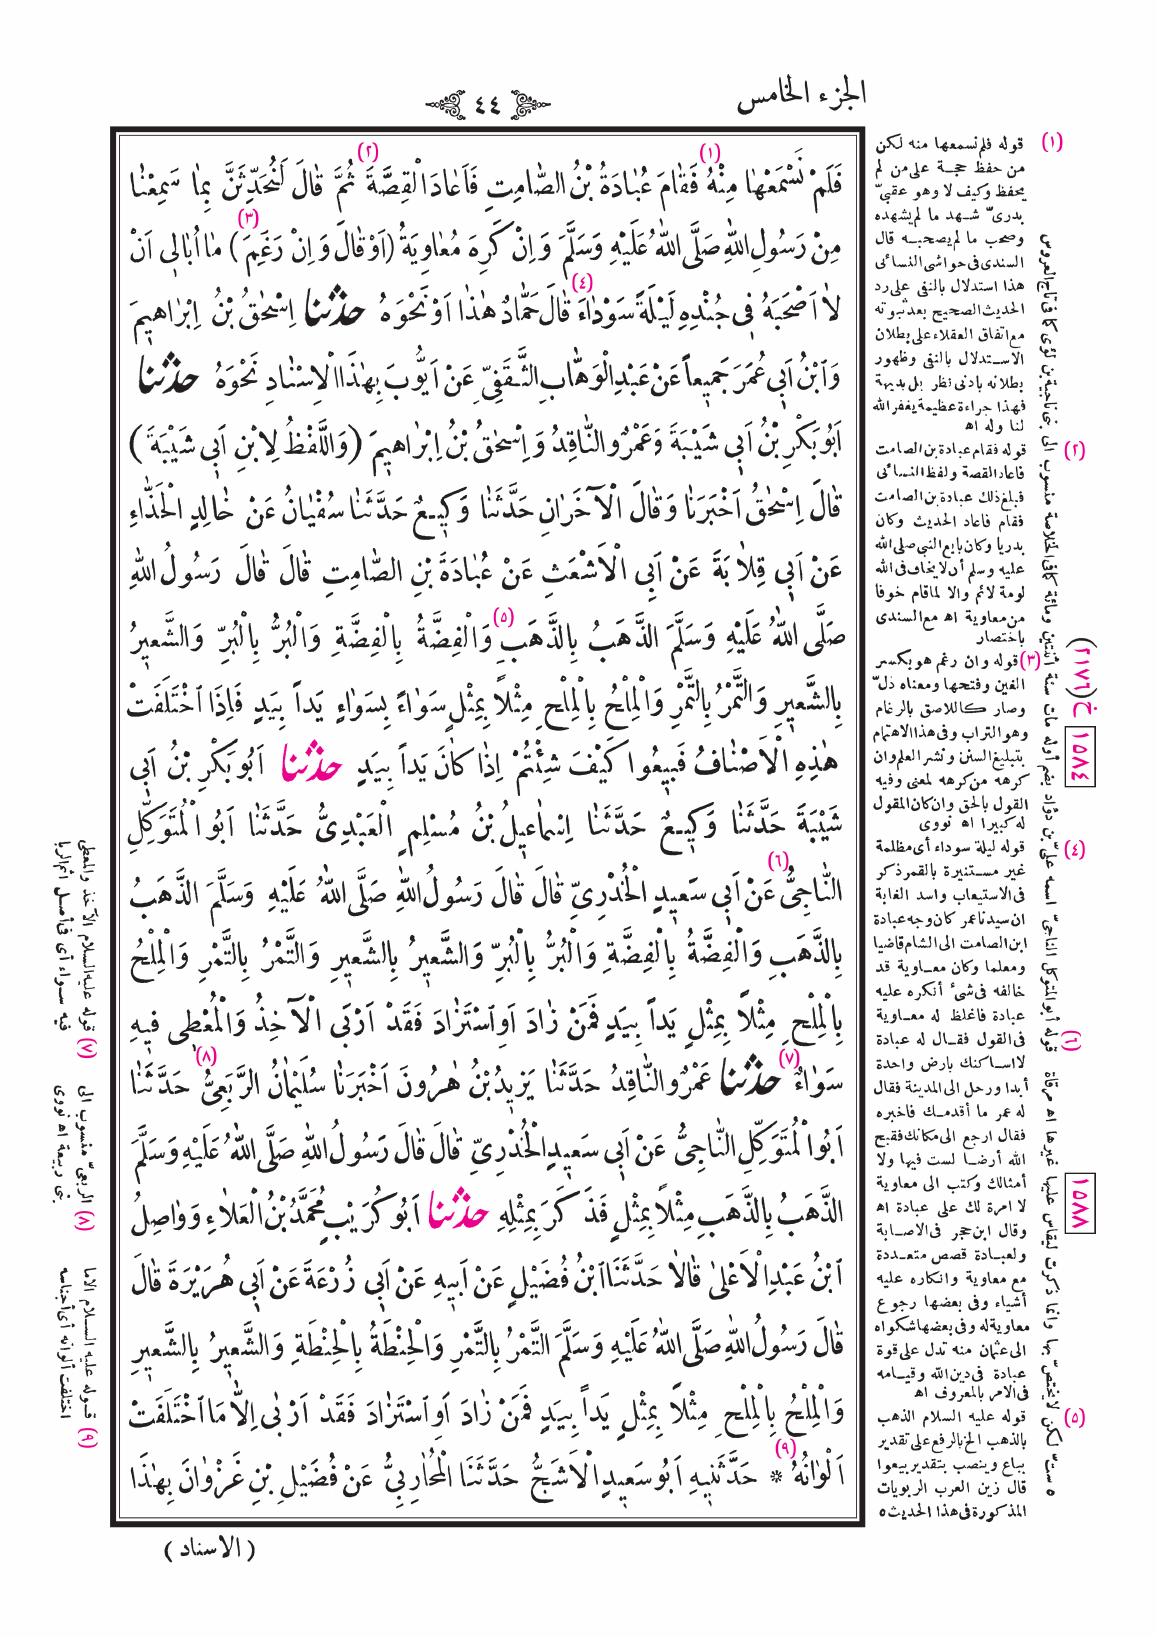 الجزء الخامس
٤٤
فَلَمْ نَسْمَعْهَا مِنْهُ (١) فَقَامَ عُبَادَةُ بْنُ الصَّامِتِ فَاَعَادَ الْقِصَّةَ (٢) ثُمَّ قَالَ لَنُحَدِّثَنَّ بِمَا سَمِعْنَا
مِنْ رَسُولِ اللهِ صَلَّى اللهُ عَلَيْهِ وَسَلَّمَ وَاِنْ كَرِهَ مُعَاوِيَةُ (اَوْ قَالَ وَاِنْ رَغِمَ (٣) ) مَا اُبَالِى اَنْ
لَا اَصْحَبَهُ فِى جُنْدِهِ لَيْلَةً سَوْدَاءَ (٤) قَالَ حَمَّادٌ هٰذَا اَوْ نَحْوَهُ حدثنا اِسْحٰقُ بْنُ اِبْرَاهِيمَ
وَابْنُ اَبِى عُمَرَ جَمِيعاً عَنْ عَبْدِ الْوَهَّابِ الثَّقَفِىِّ عَنْ اَيُّوبَ بِهٰذَا الْاِسْنَادِ نَحْوَهُ حدثنا
اَبُو بَكْرِ بْنُ اَبِى شَيْبَةَ وَعَمْرٌو النَّاقِدُ وَاِسْحٰقُ بْنُ اِبْرَاهِيمَ (وَاللَّفْظُ لِابْنِ اَبِى شَيْبَةَ)
قَالَ اِسْحٰقُ اَخْبَرَنَا وَقَالَ الْآخَرَانِ حَدَّثَنَا وَكِيعٌ حَدَّثَنَا سُفْيَانُ عَنْ خَالِدٍ الْحَذَّاءِ
عَنْ اَبِى قِلَابَةَ عَنْ اَبِى الْاَشْعَثِ عَنْ عُبَادَةَ بْنِ الصَّامِتِ قَالَ قَالَ رَسُولُ اللهِ
صَلَّى اللهُ عَلَيْهِ وَسَلَّمَ الذَّهَبُ بِالذَّهَبِ (٥) وَالْفِضَّةُ بِالْفِضَّةِ وَالْبُرُّ بِالْبُرِّ وَالشَّعِيرُ
بِالشَّعِيرِ وَالتَّمْرُ بِالتَّمْرِ وَالْمِلْحُ بِالْمِلْحِ مِثْلاً بِمِثْلٍ سَوَاءً بِسَوَاءٍ يَداً بِيَدٍ فَاِذَا اخْتَلَفَتْ
هٰذِهِ الْاَصْنَافُ فَبِيعُوا كَيْفَ شِئْتُمْ اِذَا كَانَ يَداً بِيَدٍ حدثنا اَبُو بَكْرِ بْنُ اَبِى
شَيْبَةَ حَدَّثَنَا وَكِيعٌ حَدَّثَنَا اِسْمَاعِيلُ بْنُ مُسْلِمٍ الْعَبْدِىُّ حَدَّثَنَا اَبُو الْمُتَوَكِّلِ
النَّاجِىُّ (٦) عَنْ اَبِى سَعِيدٍ الْخُدْرِىِّ قَالَ قَالَ رَسُولُ اللهِ صَلَّى اللهُ عَلَيْهِ وَسَلَّمَ الذَّهَبُ
بِالذَّهَبِ وَالْفِضَّةُ بِالْفِضَّةِ وَالْبُرُّ بِالْبُرِّ وَالشَّعِيرُ بِالشَّعِيرِ وَالتَّمْرُ بِالتَّمْرِ وَالْمِلْحُ
بِالْمِلْحِ مِثْلاً بِمِثْلٍ يَداً بِيَدٍ فَمَنْ زَادَ اَوِ اسْتَزَادَ فَقَدْ اَرْبَى الْآخِذُ وَالْمُعْطِى فِيهِ
سَوَاءٌ (٧) حدثنا عَمْرٌو النَّاقِدُ حَدَّثَنَا يَزِيدُ بْنُ هٰرُونَ اَخْبَرَنَا سُلَيْمَانُ الرَّبَعِىُّ (٨) حَدَّثَنَا
اَبُو الْمُتَوَكِّلِ النَّاجِىُّ عَنْ اَبِى سَعِيدٍ الْخُدْرِىِّ قَالَ قَالَ رَسُولُ اللهِ صَلَّى اللهُ عَلَيْهِ وَسَلَّمَ
الذَّهَبُ بِالذَّهَبِ مِثْلاً بِمِثْلٍ فَذَكَرَ بِمِثْلِهِ حدثنا اَبُو كُرَيْبٍ مُحَمَّدُ بْنُ الْعَلَاءِ وَوَاصِلُ
ابْنُ عَبْدِ الْاَعْلٰى قَالَا حَدَّثَنَا ابْنُ فُضَيْلٍ عَنْ اَبِيهِ عَنْ اَبِى زُرْعَةَ عَنْ اَبِى هُرَيْرَةَ قَالَ
قَالَ رَسُولُ اللهِ صَلَّى اللهُ عَلَيْهِ وَسَلَّمَ التَّمْرُ بِالتَّمْرِ وَالْحِنْطَةُ بِالْحِنْطَةِ وَالشَّعِيرُ بِالشَّعِيرِ
وَالْمِلْحُ بِالْمِلْحِ مِثْلاً بِمِثْلٍ يَداً بِيَدٍ فَمَنْ زَادَ اَوِ اسْتَزَادَ فَقَدْ اَرْبٰى اِلَّا مَا اخْتَلَفَتْ
اَلْوَانُهُ (٩) * حَدَّثَنِيهِ اَبُو سَعِيدٍ الْاَشَجُّ حَدَّثَنَا الْمُحَارِبِىُّ عَنْ فُضَيْلِ بْنِ غَزْوَانَ بِهٰذَا
( الاسناد )
(١) قوله فلم نسمعها منه لكن
من حفظ حجة على من لم
يحفظ وكيف لا وهو عقبىّ
بدرىّ شهد ما لم يشهده
وصحب ما لم يصحبه قال
السندى فى حواشى النسائى
هذا استدلال بالنفى على رد
الحديث الصحيح بعد ثبوته
مع اتفاق العقلاء على بطلان
الاستدلال بالنفى وظهور
بطلانه بادنى نظر بل بديهة
فهذا جراءة عظيمة يغفر الله
لنا وله اه
(٢) قوله فقام عبادة بن الصامت
فاعاد القصة ولفظ النسائى
فبلغ ذلك عبادة بن الصامت
فقام فاعاد الحديث وكان
بدريا وكان بايع النبى صلى الله
عليه وسلم أن لا يخاف فى الله
لومة لائم والا لما قام خوفا
من معاوية اه مع السندى
باختصار
(٣) قوله وان رغم هو بكسر
الغين وفتحها ومعناه ذلّ
وصار كاللاصق بالرغام
وهو التراب وفى هذا الاهتمام
بتبليغ السنن ونشر العلم وان
كرهه من كرهه لمعنى وفيه
القول بالحق وان كان المقول
له كبيرا اه نووى
(٤) قوله ليلة سوداء أى مظلمة
غير مستنيرة بالقمر ذكر
فى الاستيعاب واسد الغابة
ان سيدنا عمر كان وجه عبادة
ابن الصامت الى الشام قاضيا
ومعلما وكان معاوية قد
خالفه فى شئ أنكره عليه
عبادة فاغلظ له معاوية
فى القول فقال له عبادة
لا اساكنك بارض واحدة
أبدا ورحل الى المدينة فقال
له عمر ما أقدمك فاخبره
فقال ارجع الى مكانك فقبح
الله أرضا لست فيها ولا
أمثالك وكتب الى معاوية
لا امرة لك على عبادة اه
وقال ابن حجر فى الاصابة
ولعبادة قصص متعددة
مع معاوية وانكاره عليه
أشياء وفى بعضها رجوع
معاوية له وفى بعضها شكواه
الى عثمان منه تدل على قوة
عبادة فى دين الله وقيامه
فى الامر بالمعروف اه
(٥) قوله عليه السلام الذهب
بالذهب الخ بالرفع على تقدير
يباع وينصب بتقدير بيعوا
قال زين العرب الربويات
المذكورة فى هذا الحديث ٥
٥ ست لكن لا يختصّ بها وانما ذكرت ليقاس عليها غيرها اه مرقاة
(٦) قوله أبو المتوكل الناجىّ اسمه علىّ بن دؤاد بضم أوله مات سنة اثنتين ومائة كما فى الخلاصة منسوب الى بنى ناجية بن لؤى كما فى تاج العروس
خ(٢١٧٦)
١٥٨٤
١٥٨٨
(٧) قوله عليه السلام الآخذ والمعطى
فيه سواء أى فى أصل اثم الربا
(٨) الربعىّ منسوب الى
بنى ربيعة اه نووى
(٩) قوله عليه السلام الا ما
اختلفت ألوانه أى أجناسه